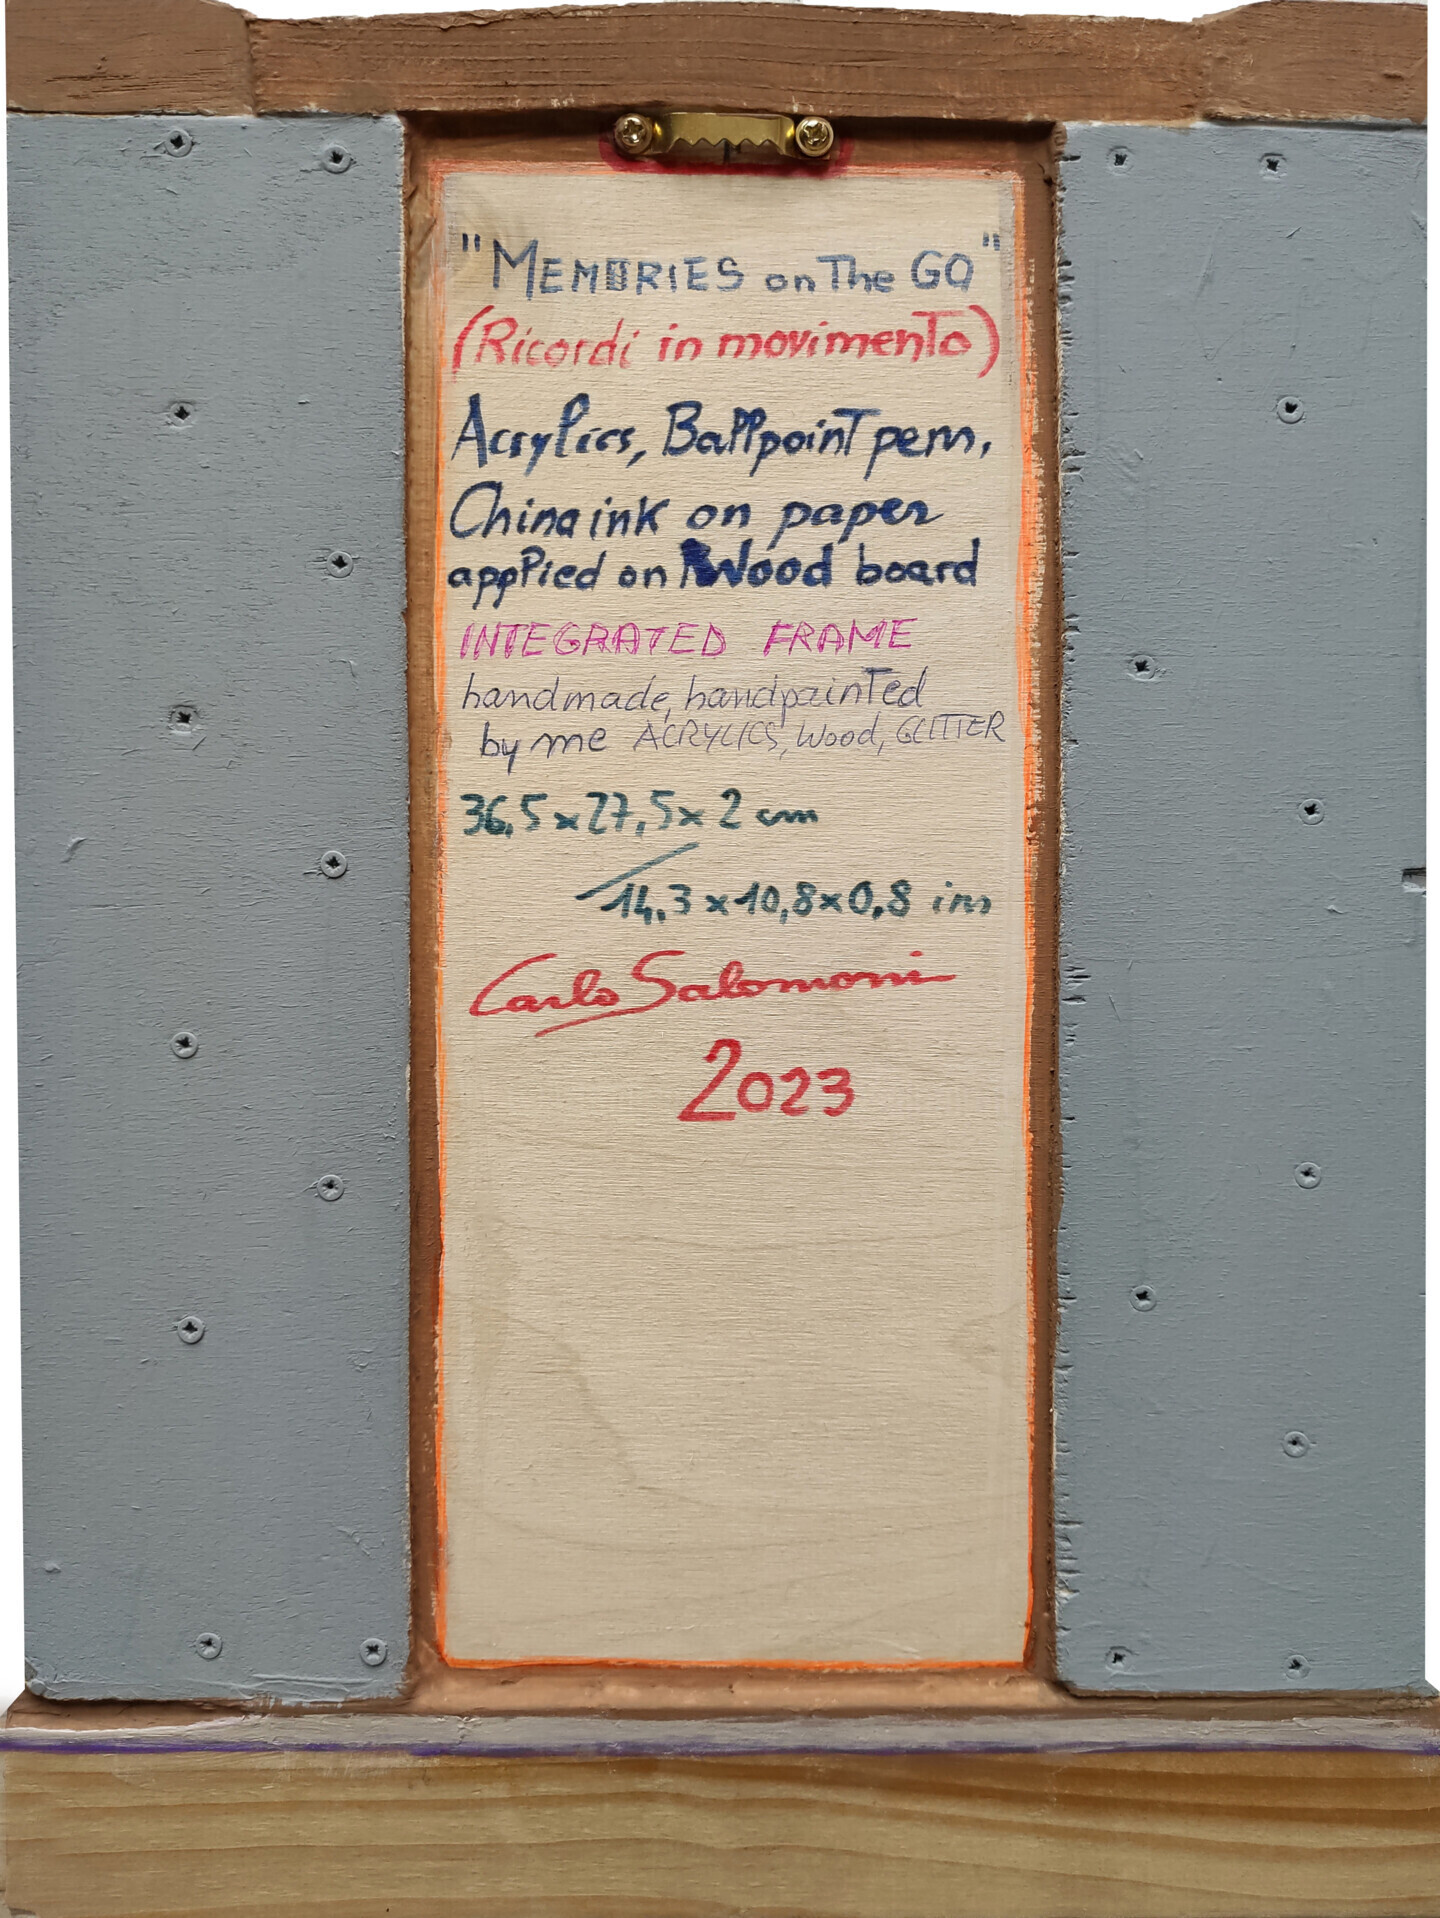 "MEMORIES on The GO"
(Ricordi in movimento)
Acrylics, Ballpoint pen,
China ink on paper
applied on Wood board
INTEGRATED FRAME
handmade, handpainted
by me ACRYLICS, Wood, GLITTER
36,5 x 27,5 x 2 cm
14,3 x 10,8 x 0,8 in
Carlo Salomoni
2023